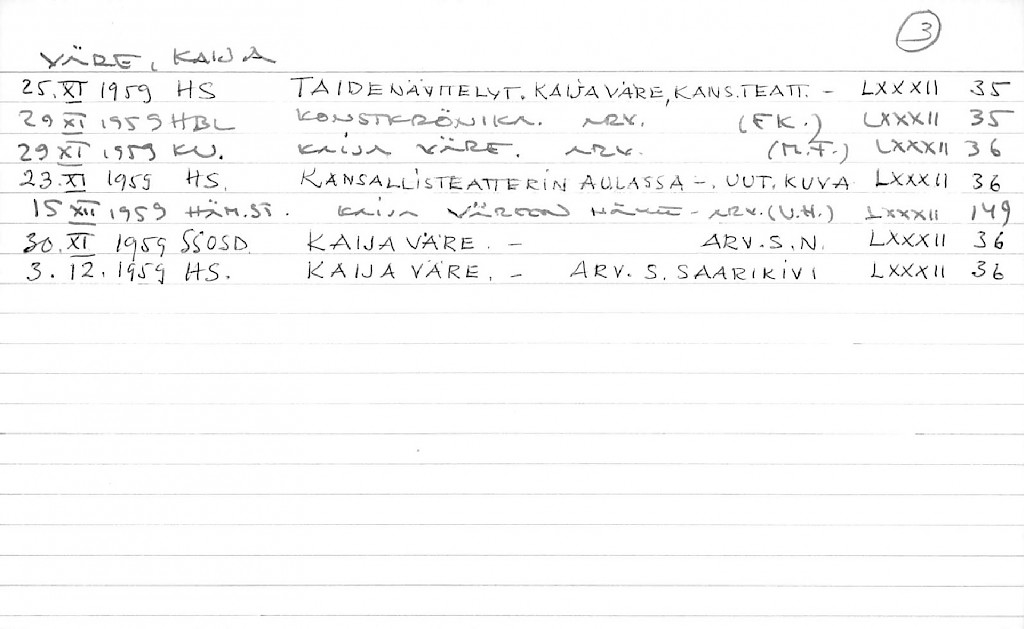 3
VÄRE, KAIJA
25.XI 1959 HS TAIDENÄYTTELYT. KAIJA VÄRE, KANS.TEATT. - LXXXII 35
29 XI 1959 HBL KONSTKRÖNIKA. ARV. (EK.) LXXXII 35
29 XI 1959 KU. KAIJA VÄRE. ARV. (M.T.) LXXXII 36
23.XI 1959 HS. KANSALLISTEATTERIN AULASSA -. UUT. KUVA LXXXII 36
15 XII 1959 HÄM.ST. KAIJA VÄREEN - ARV.(U.H.) LXXXII 149
30.XI 1959 SSOSD. KAIJA VÄRE. - ARV. S.N. LXXXII 36
3.12.1959 HS. KAIJA VÄRE. - ARV. S. SAARIKIVI LXXXII 36